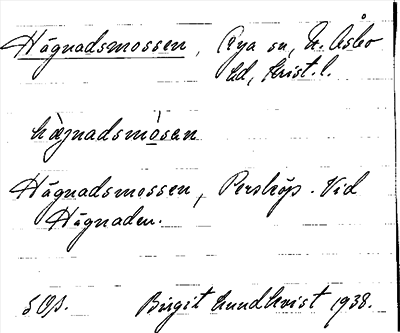 Hägnadsmossen, Rya sn, N. Åsbo
hd, Krist. l.
hæ̀gnadsmósan
Hägnadsmossen, Perstorp. Vid
Hägnaden.
Birgit Lundkvist 1938.